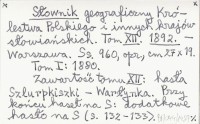 Słownik geograficzny Kró-
lestwa Polskiego i innych krajów
słowiańskich. Tom XII. 1892. -
Warszawa. Ss. 960, opr., cm 27 x 19.
Tom I: 1880.
Zawartość tomu XII: hasła
Szlurpkiszki - Warłynka. Przy
końcu haseł na S: dodatkowe
hasło na S (s. 132-133).